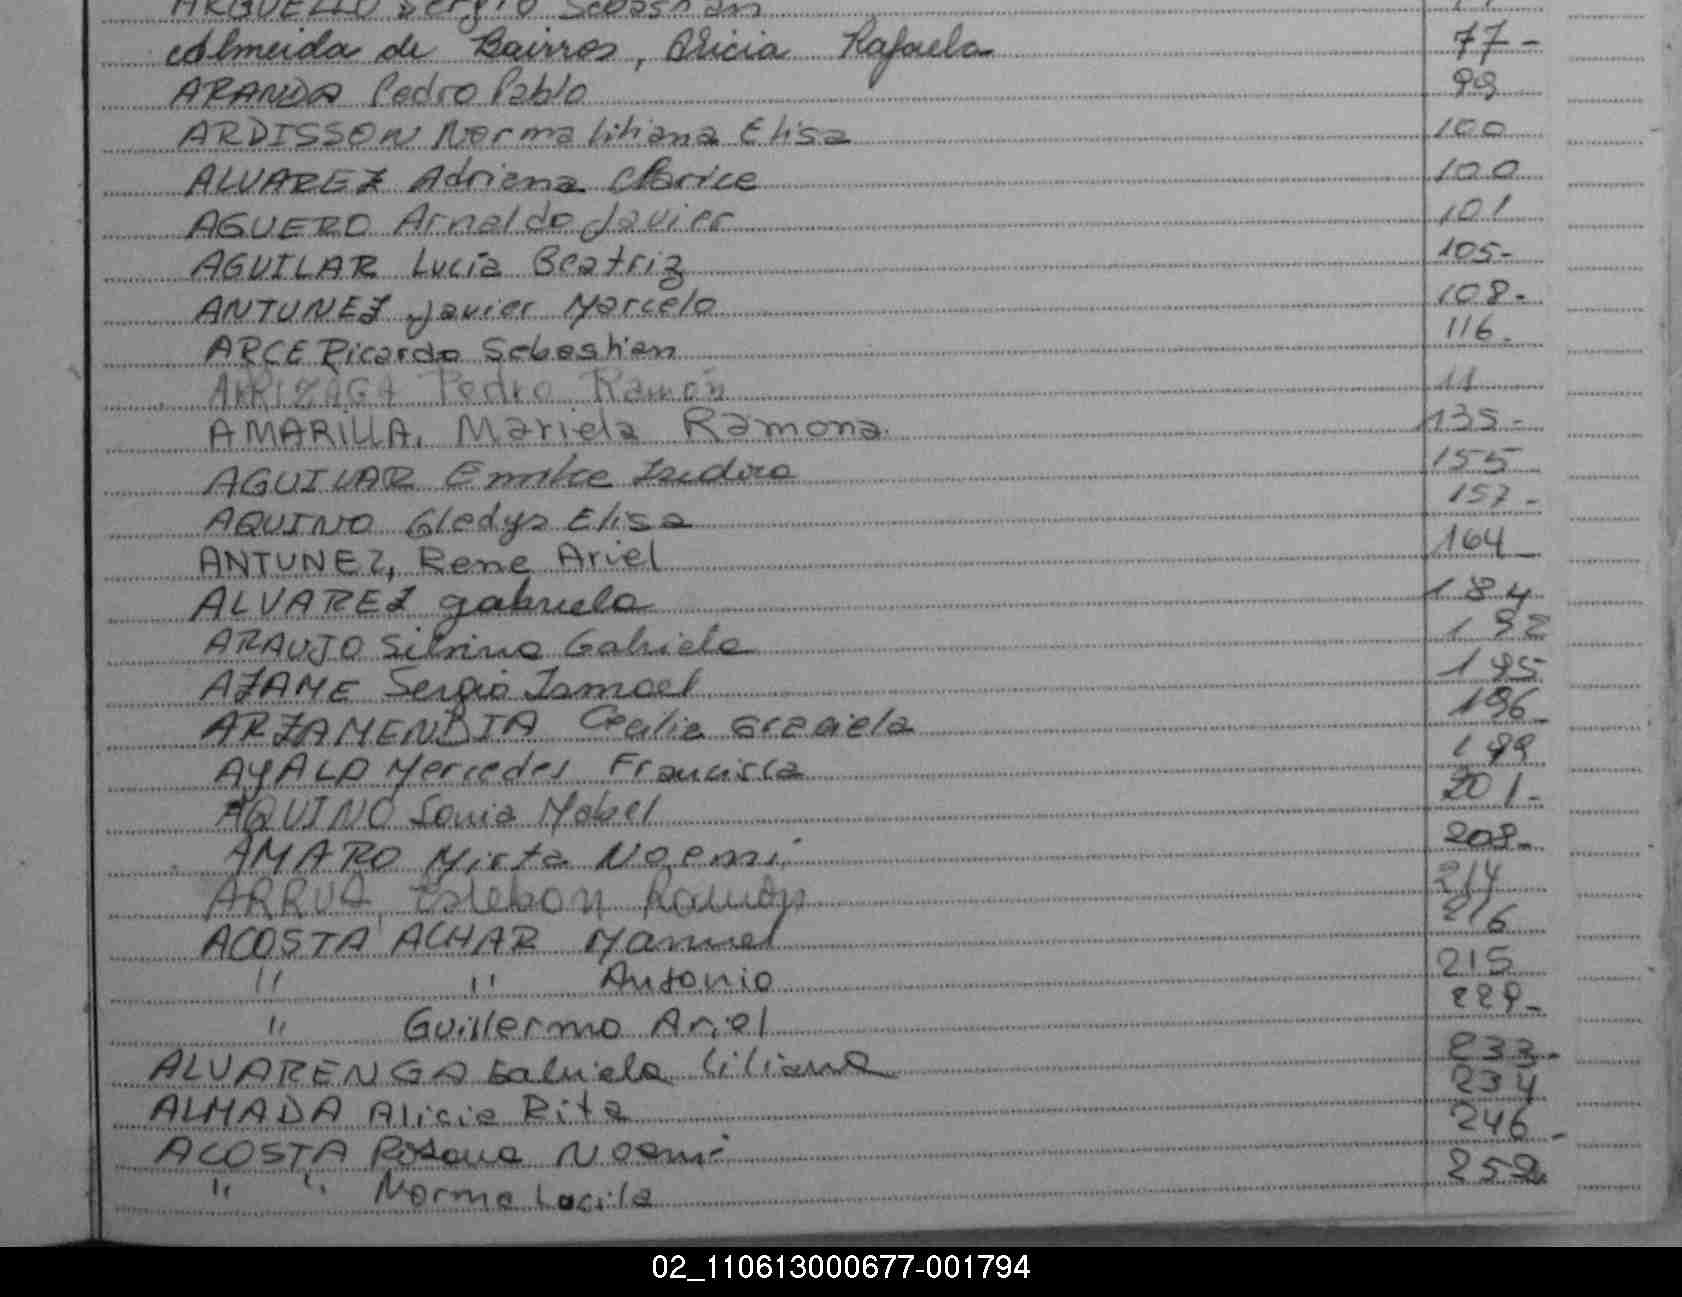 ARGUELLO Sergio Sebastian
Almeida de Bairros, Alicia Rafaela 77-
ARANDA Pedro Pablo 99
ARDISSON Norma Liliana Elisa 100
ALVAREZ Adriana Clarice 100
AGUERO Arnaldo Javier 101
AGUILAR Lucia Beatriz 105-
ANTUNEZ Javier Marcelo 108-
ARCE Ricardo Sebastian 116-
ARRIZAGA Pedro Ramón 11
AMARILLA, Mariela Ramona 135-
AGUILAR Emilce Isidora 155
AQUINO Gledys Elisa 157-
ANTUNEZ, Rene Ariel 164-
ALVAREZ gabriela 184
ARAUJO Silvina Gabriela 192
AZAME Sergio Ismael 195
ARZAMENDIA Cecilia Graciela 196-
AYALA Mercedes Francisca 199
AQUINO Sonia Mabel 201-
AMARO Mirta Noemi 208-
ARRUA, Esteban Ramón 214
ACOSTA ACHAR Manuel 216
" " Antonio 215
" Guillermo Ariel 229-
ALVARENGA Gabriela Liliana 233-
ALMADA Alicia Rita 234
ACOSTA Rosana Noemi 246-
" " Norma Lucila 259-
02_110613000677-001794